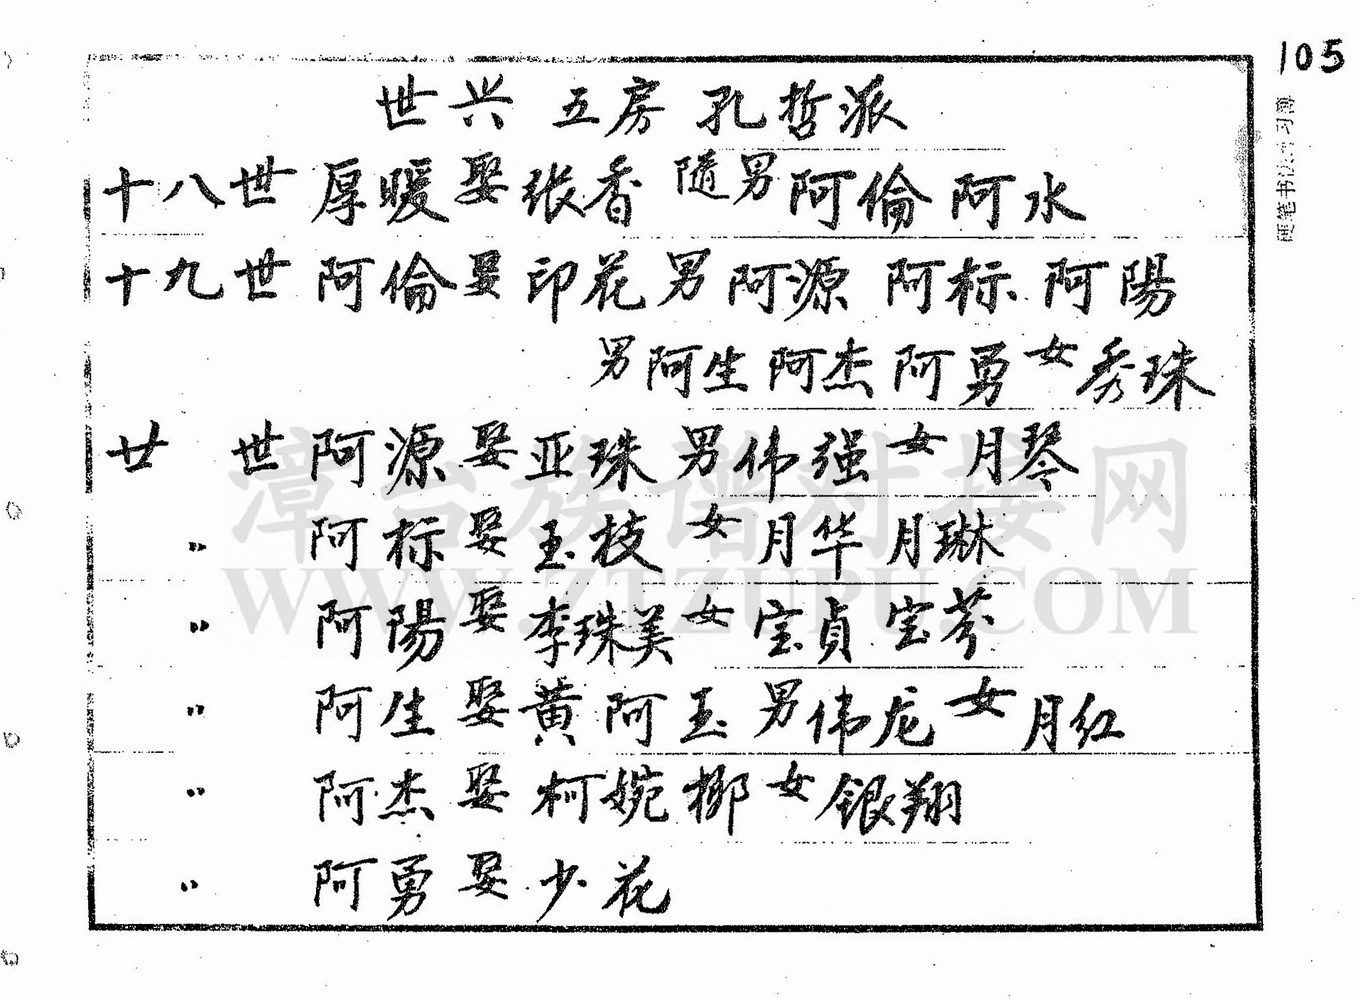 105
硬笔书法练习簿
世兴 五房 孔哲派
十八世 厚暖 娶 张香 随男 阿倫 阿水
十九世 阿倫 娶 印花 男 阿源 阿标 阿陽
男 阿生 阿杰 阿勇 女 秀珠
廿 世 阿源 娶 亚珠 男 伟强 女 月琴
〃 阿标 娶 玉枝 女 月华 月琳
〃 阿陽 娶 李珠美 女 宝貞 宝芬
〃 阿生 娶 黄阿玉 男 伟龙 女 月红
〃 阿杰 娶 柯婉娜 女 银翔
〃 阿勇 娶 少花
漳台族谱对接网
WWW.ZTZUPU.COM